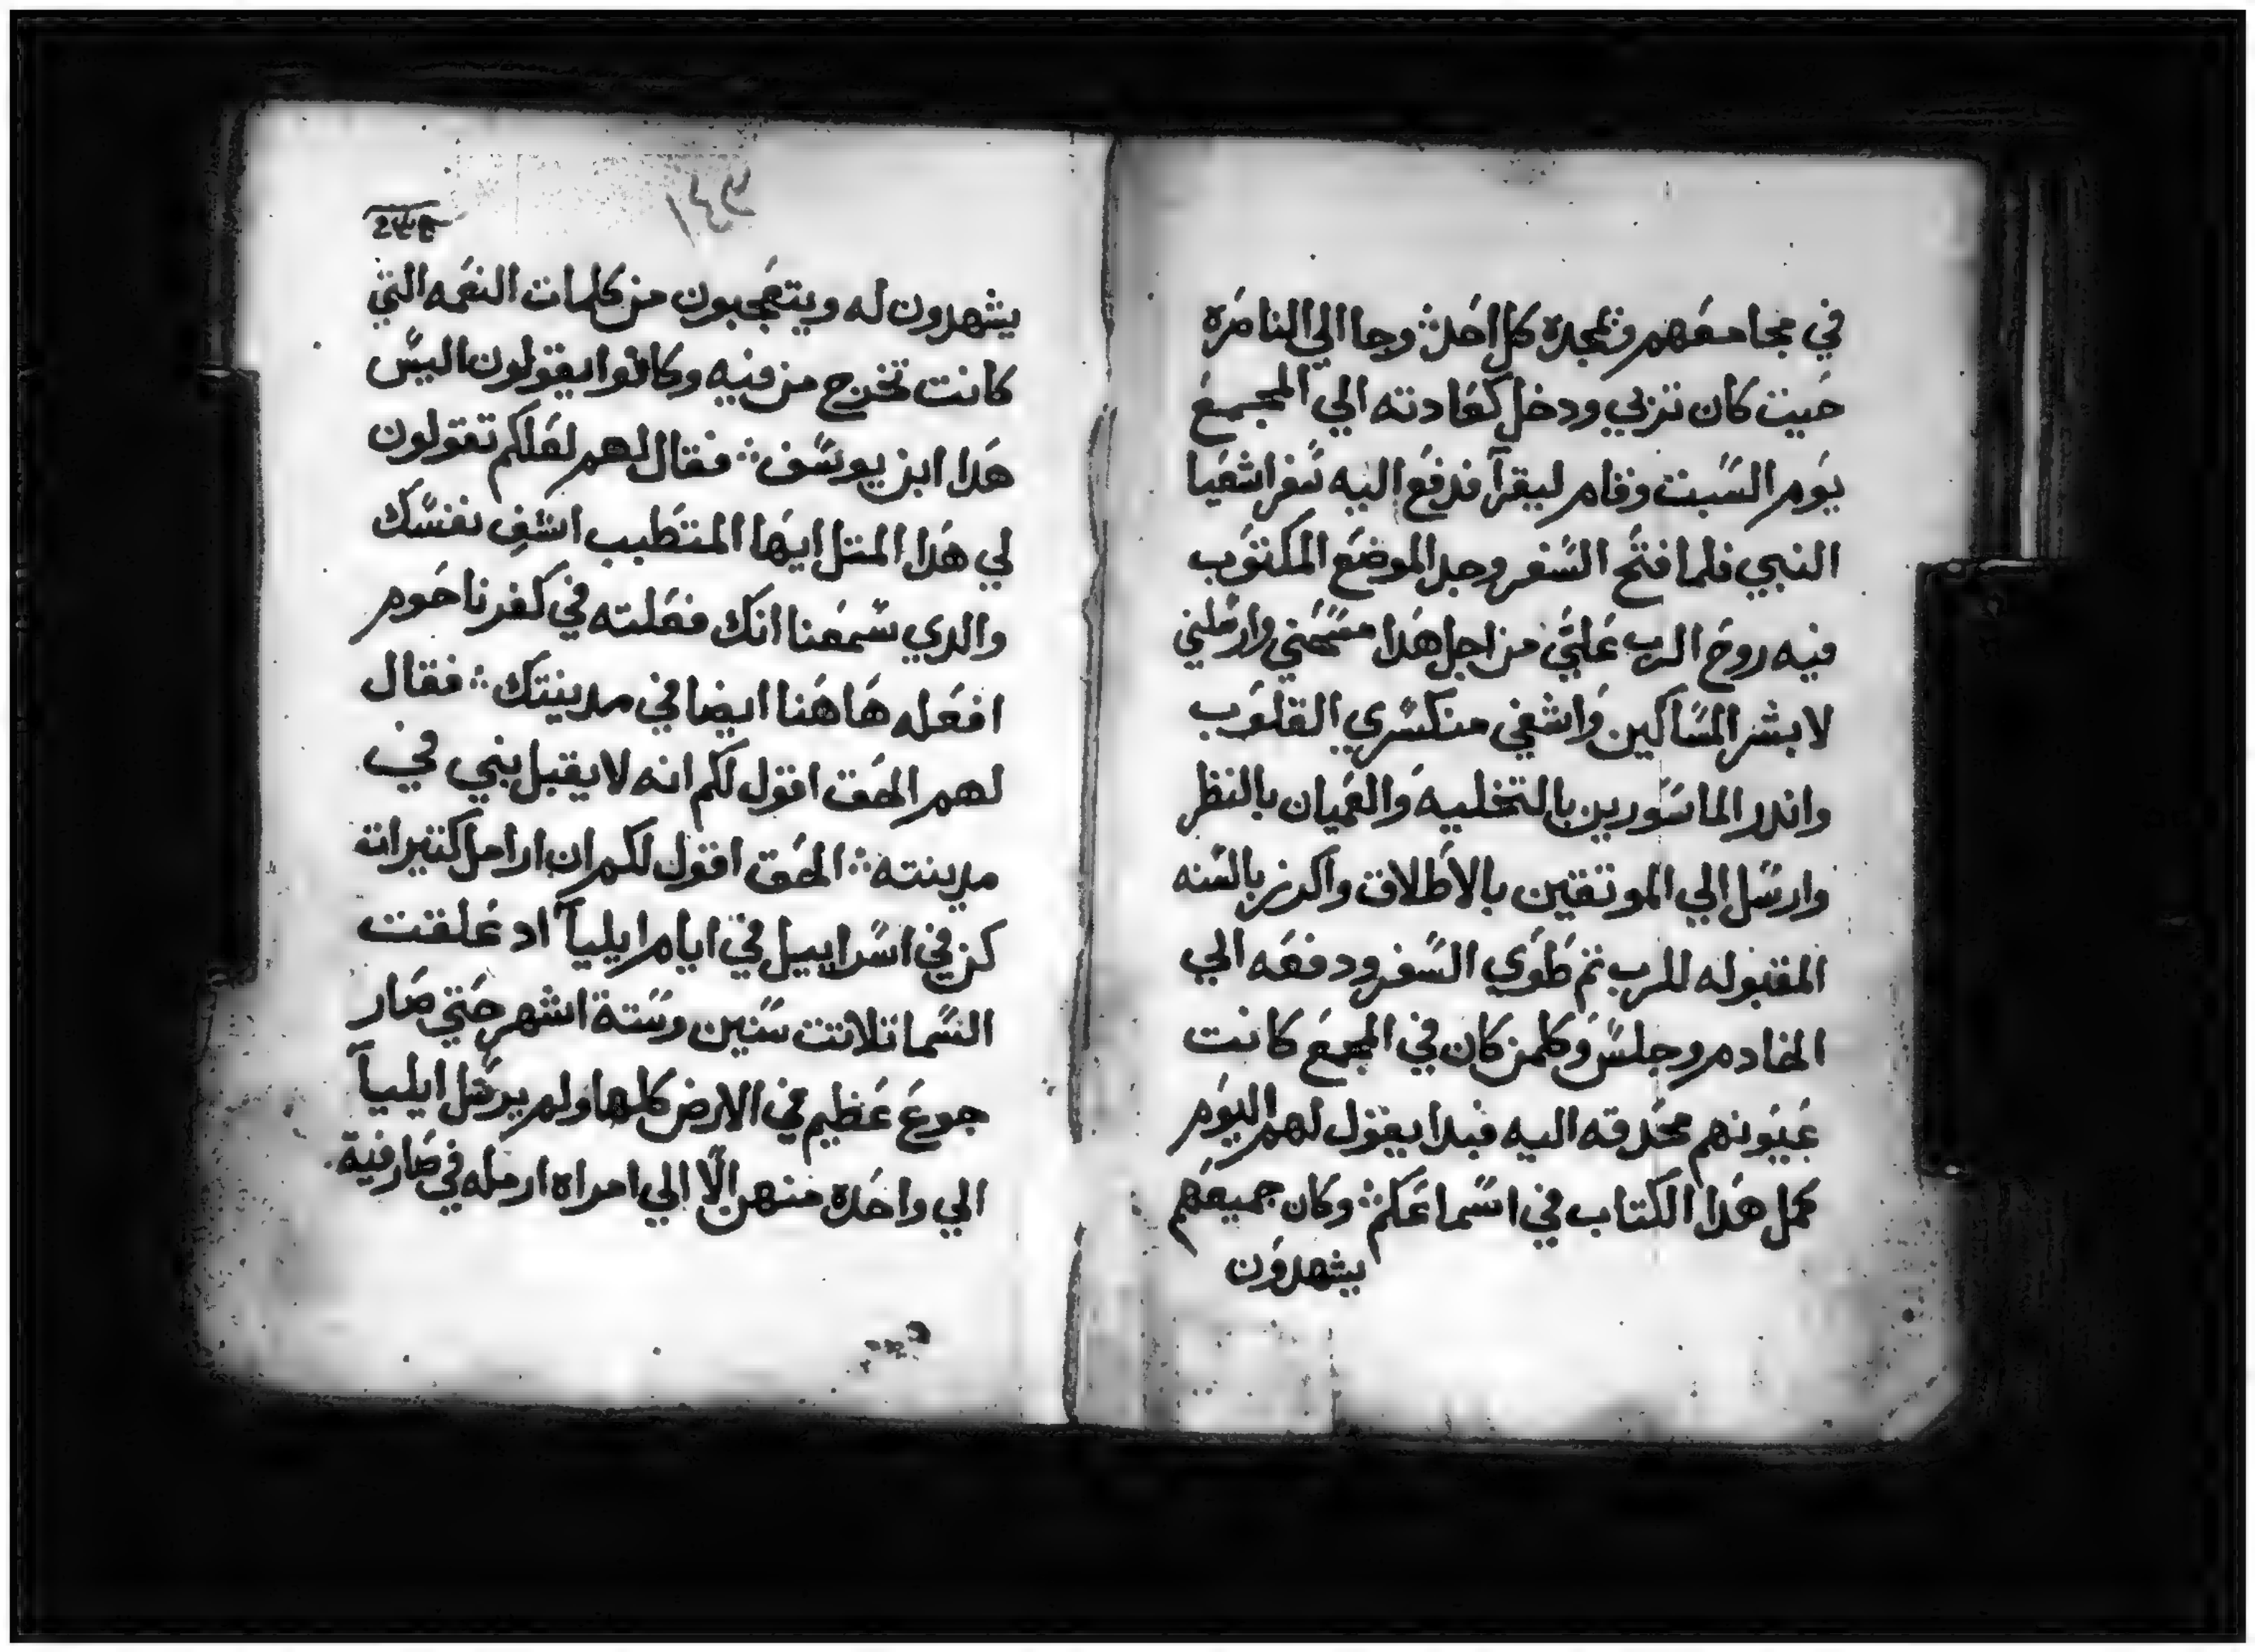 في مجامعهم ويمجده كل احد ∴ وجا الي الناصره
حيت كان تربي ودخل كعادته الي المجمع
يوم السبت وقام ليقرآ فدفع اليه سفر اشعيا
النبي فلما فتح السفر وجد الموضع المكتوب
فيه روح الرب عليّ من اجل هدا مسحني وارسلني
لابشر المساكين واشفي منكسري القلوب
واندر الماسورين بالتخليه والعميان بالنظر
وارسل الي الموتقين بالاطلاق واكرز بالسنه
المقبوله للرب تم طوي السفر ودفعه الي
الخادم وجلس وكلمن كان في المجمع كانت
عيونهم محدقه اليه فبدا يقول لهم اليوم
كمل هدا الكتاب في اسماعكم ∴ وكان جميعهم
يشهدون
يشهدون له ويتعجبون من كلمات النعمه التي
كانت تخرج من فيه وكانوا يقولون اليس
هدا ابن يوسف ∴ فقال لهم لعلكم تقولون
لي هدا المتل ايها المتطبب اشفِ نفسك
والدي سمعنا انك فعلته في كفرناحوم
افعله هاهنا ايضا في مدينتك ∴ فقال
لهم الحق اقول لكم انه لا يقبل نبي في
مدينته ∴ الحق اقول لكم ان ارامل كتيرات
كن في اسراييل في ايام ايلياآ اد غلقت
السما تلاتت سنين وستة اشهر حتي صار
جوع عظيم في الارض كلها ولم يرسل ايلياآ
الي واحده منهن الّا الي امراه ارمله في صارفية